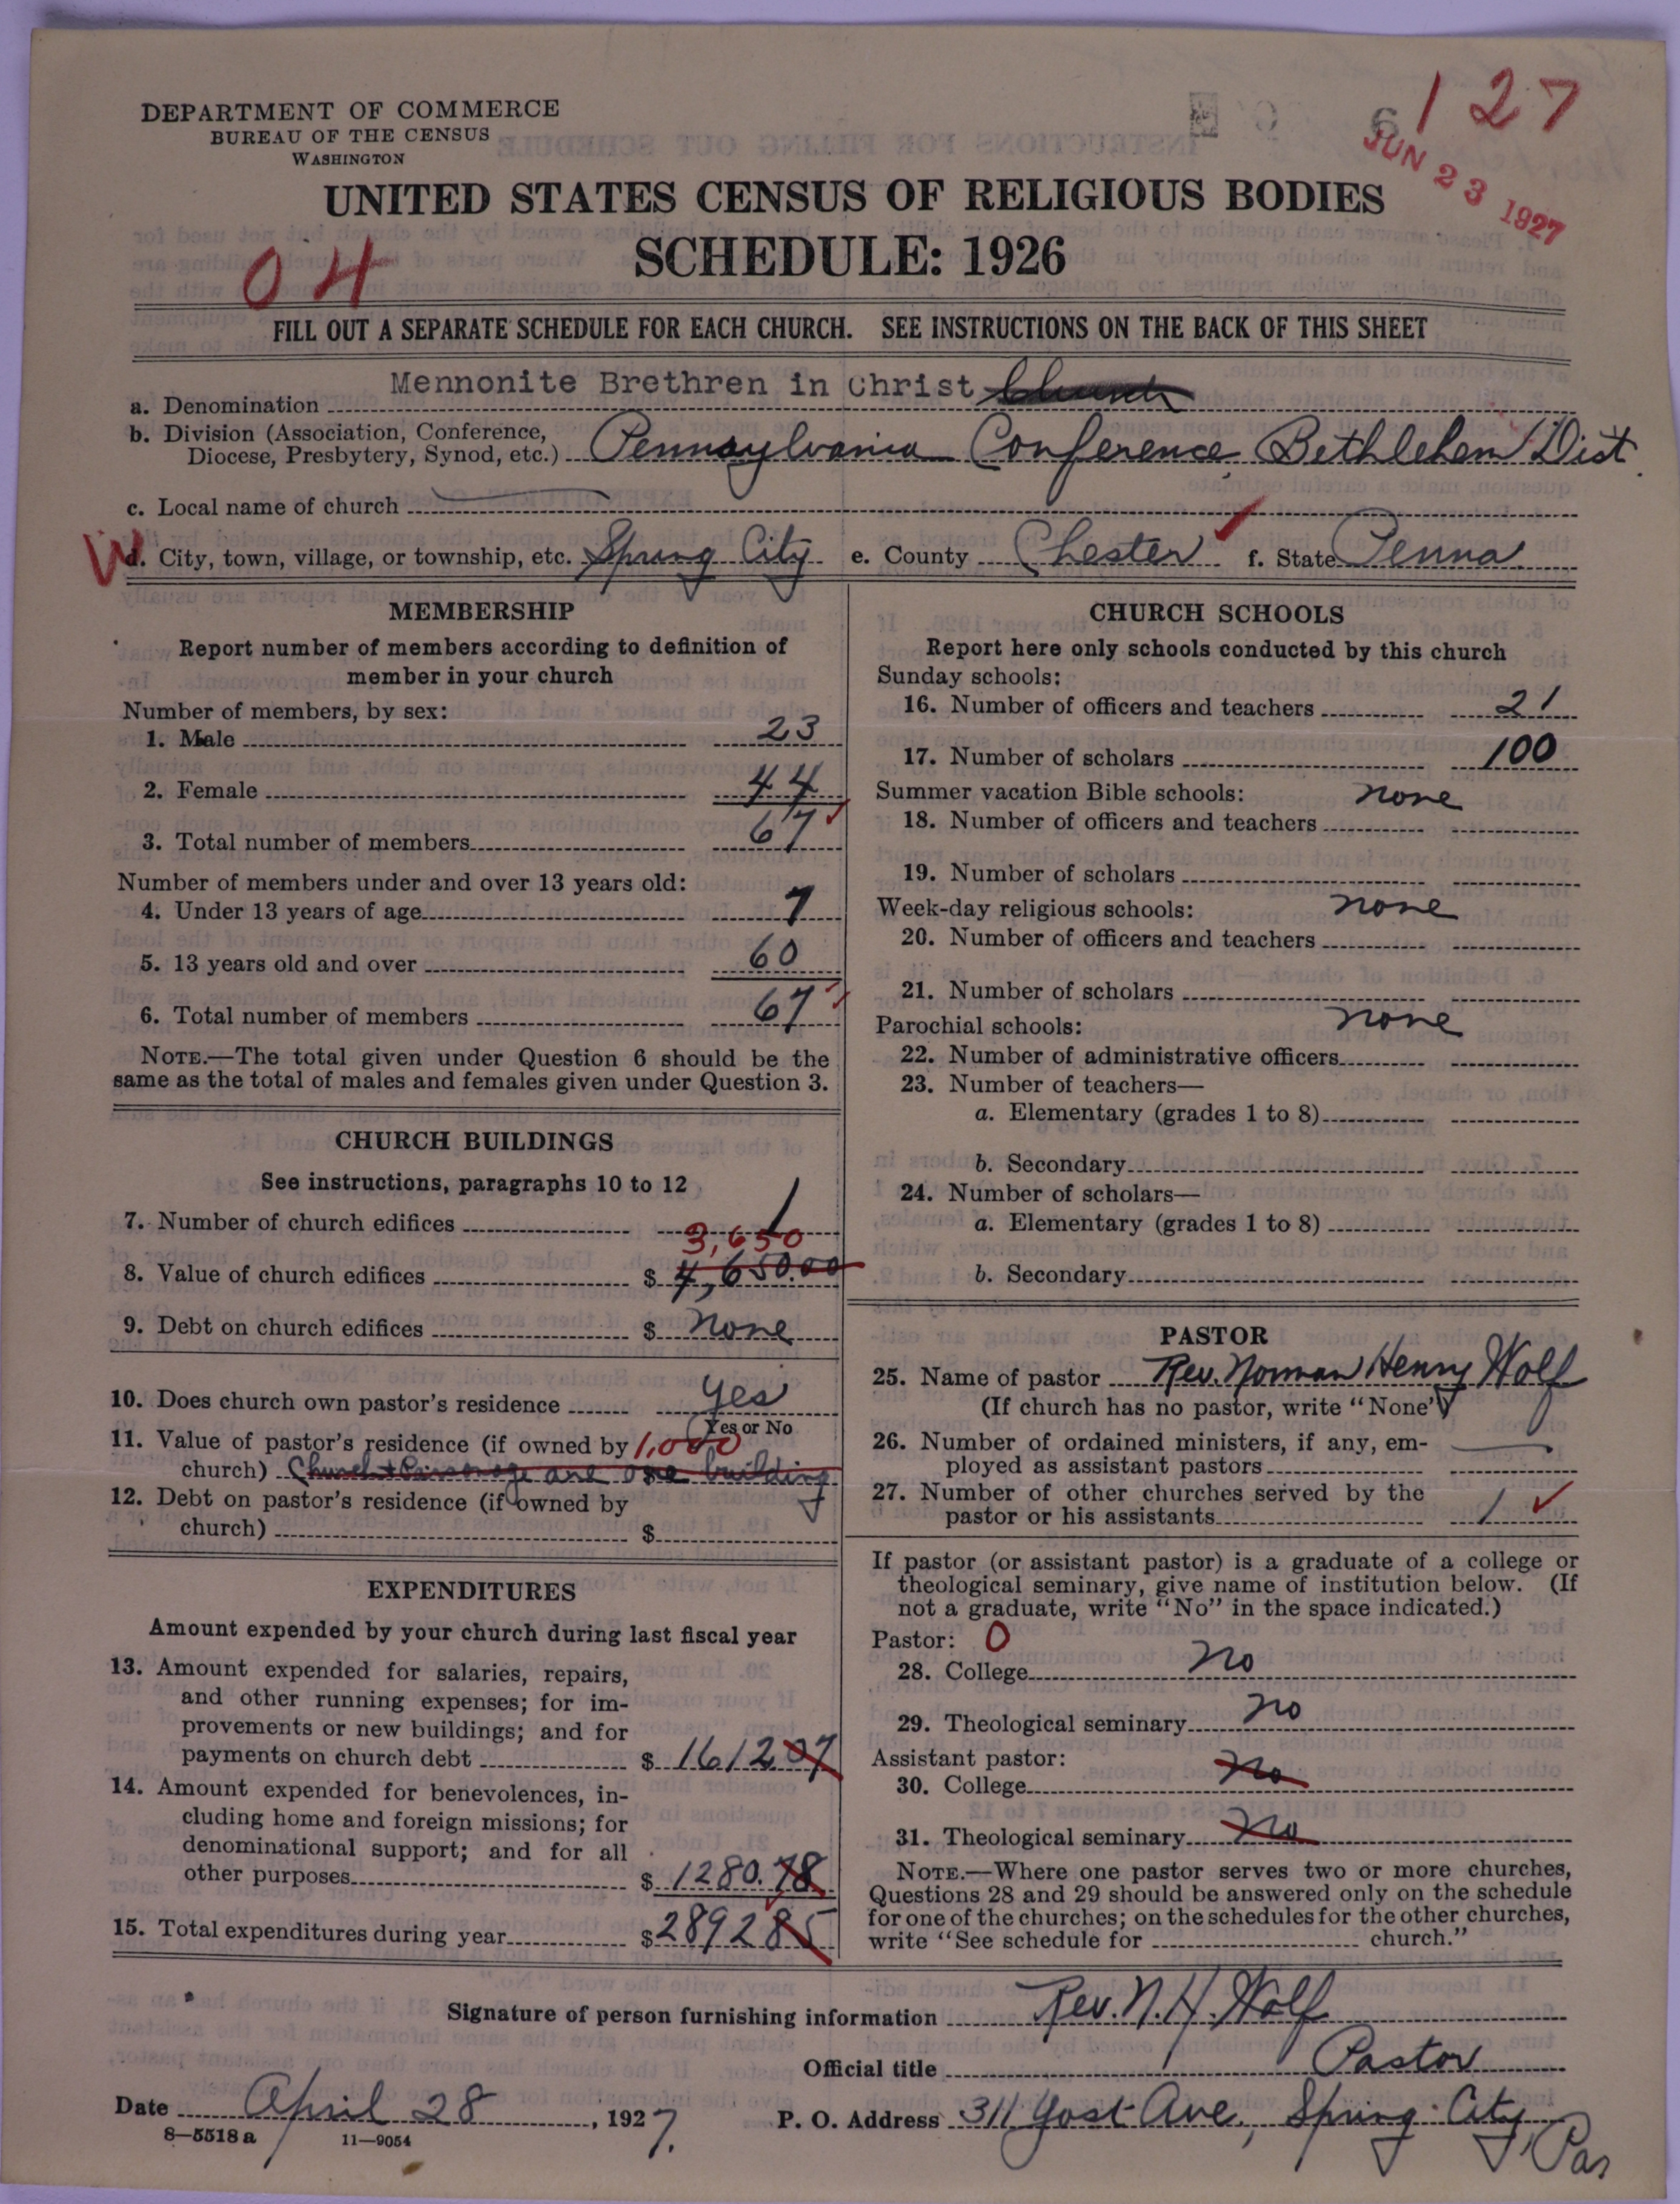 127
6
JUN 23 1927
DEPARTMENT OF COMMERCE
BUREAU OF THE CENSUS
WASHINGTON
UNITED STATES CENSUS OF RELIGIOUS BODIES
SCHEDULE: 1926
04
FILL OUT A SEPARATE SCHEDULE FOR EACH CHURCH. SEE INSTRUCTIONS ON THE BACK OF THIS SHEET
a. Denomination Mennonite Brethren in Christ Church
b. Division (Association, Conference,
Diocese, Presbytery, Synod, etc.) Pennsylvania Conference, Bethlehem Dist.
c. Local name of church
d. City, town, village, or township, etc. Spring City e. County Chester f. State Penna
MEMBERSHIP
Report number of members according to definition of
member in your church
Number of members, by sex:
1. Male 23
2. Female 44
3. Total number of members 67
Number of members under and over 13 years old:
4. Under 13 years of age 7
5. 13 years old and over 60
6. Total number of members 67
NOTE.—The total given under Question 6 should be the
same as the total of males and females given under Question 3.
CHURCH BUILDINGS
See instructions, paragraphs 10 to 12
7. Number of church edifices 1
3,650
8. Value of church edifices $ 4,650.00
9. Debt on church edifices $ none
10. Does church own pastor's residence yes
(Yes or No
11. Value of pastor's residence (if owned by 1,000
church) Church + Parsonage are one building
12. Debt on pastor's residence (if owned by
church) $
EXPENDITURES
Amount expended by your church during last fiscal year
13. Amount expended for salaries, repairs,
and other running expenses; for im-
provements or new buildings; and for
payments on church debt $ 1612.07
14. Amount expended for benevolences, in-
cluding home and foreign missions; for
denominational support; and for all
other purposes $ 1280.78
15. Total expenditures during year $ 2892 85
CHURCH SCHOOLS
Report here only schools conducted by this church
Sunday schools:
16. Number of officers and teachers 21
17. Number of scholars 100
Summer vacation Bible schools: none
18. Number of officers and teachers
19. Number of scholars
Week-day religious schools: none
20. Number of officers and teachers
21. Number of scholars
Parochial schools: none
22. Number of administrative officers
23. Number of teachers—
a. Elementary (grades 1 to 8)
b. Secondary
24. Number of scholars—
a. Elementary (grades 1 to 8)
b. Secondary
PASTOR
25. Name of pastor Rev. Norman Henry Wolf
(If church has no pastor, write "None")
26. Number of ordained ministers, if any, em-
ployed as assistant pastors
27. Number of other churches served by the
pastor or his assistants 1
If pastor (or assistant pastor) is a graduate of a college or
theological seminary, give name of institution below. (If
not a graduate, write "No" in the space indicated.)
Pastor: 0
28. College no
29. Theological seminary no
Assistant pastor:
30. College no
31. Theological seminary no
NOTE.—Where one pastor serves two or more churches,
Questions 28 and 29 should be answered only on the schedule
for one of the churches; on the schedules for the other churches,
write "See schedule for church."
Signature of person furnishing information Rev. N. H. Wolf
Official title Pastor
Date April 28, 1927. P. O. Address 311 Yost Ave, Spring City, Pa
8—5518 a 11—9054